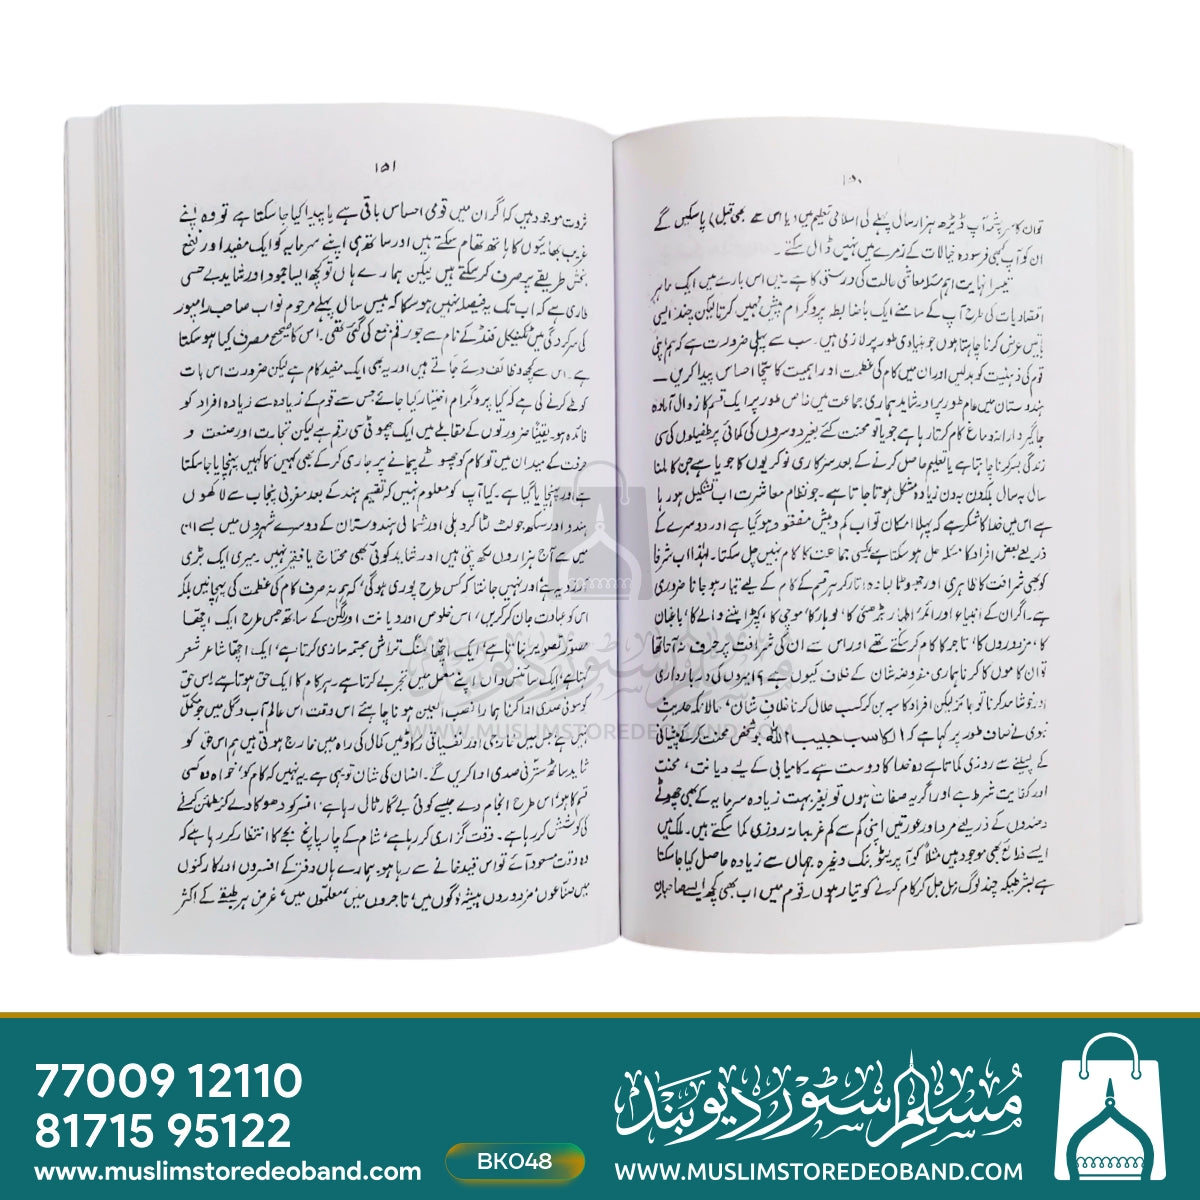 ۱۵۰
توان کا سرچشمہ آپ ڈیڑھ ہزار سال پہلے کی اسلامی تعلیم میں دیا اس سے بھی قبل) پا سکیں گے
ان کو آپ کبھی فرسودہ خیالات کے زمرے میں نہیں ڈال سکتے۔
تیسرا نہایت اہم مسئلہ معاشی حالت کی درستی کا ہے۔ میں اس بارے میں ایک ماہر
اقتصادیات کی طرح آپ کے سامنے ایک باضابطہ پروگرام پیش نہیں کرتا لیکن چند ایسی
باتیں عرض کرنا چاہتا ہوں جو بنیادی طور پر لازمی ہیں۔ سب سے پہلی ضرورت ہے کہ ہم اپنی
قوم کی ذہنیت کو بدلیں اور ان میں کام کی عظمت اور اہمیت کا سچا احساس پیدا کریں۔
ہندوستان میں عام طور پر اور شاید ہماری جماعت میں خاص طور پر ایک قسم کا زوال آمادہ
جاگیردارانہ دماغ کام کرتا رہا ہے جو یا تو محنت کئے بغیر دوسروں کی کمائی پر طفیلوں کی سی
زندگی بسر کرنا چاہتا ہے یا تعلیم حاصل کرنے کے بعد سرکاری نوکریوں کا جویا ہے جن کا ملنا
سال بہ سال بلکہ دن بہ دن زیادہ مشکل ہوتا جاتا ہے۔ جو نظام معاشرت اب تشکیل ہو رہا
ہے اس میں خدا کا شکر ہے کہ پہلا امکان تو اب کم و بیش مفقود ہو گیا ہے اور دوسرے کے
ذریعے بعض افراد کا مسئلہ حل ہو سکتا ہے لیکن جماعت کا کام نہیں چل سکتا۔ لہٰذا اب شرفا
کو بھی شرافت کا ظاہری اور جھوٹا لبادہ اتار کر ہر قسم کے کام کے لیے تیار ہو جانا ضروری
ہے۔ اگر ان کے انبیاء اور ائمہ اطہار بڑھئی کا، لوہار کا، موچی کا، کپڑا بننے والے کا، باغبان
کا، مزدوروں کا، تاجر کا کام کر سکتے تھے اور اس سے ان کی شرافت پر حرف نہ آتا تھا
تو ان کاموں کا کرنا ہماری مفروضہ شان کے خلاف کیوں ہے؟ امیروں کی دربارداری
اور خوشامد کرنا تو جائز لیکن افراد کا سپہ بن کر کسب حلال کرنا خلاف شان، حالانکہ حدیث
نبوی نے صاف طور پر کہا ہے کہ الکاسب حبیب اللہ جو شخص محنت کر کے پیشانی
کے پسینے سے روزی کماتا ہے وہ خدا کا دوست ہے۔ کامیابی کے لیے دیانت، محنت
اور کفایت شرط ہے اور اگر یہ صفات ہوں تو بغیر بہت زیادہ سرمایہ کے بھی چھوٹے
دھندوں کے ذریعے مرد اور عورتیں اپنی کم سے کم غریبانہ روزی کما سکتے ہیں۔ ملک میں
ایسے ذرائع بھی موجود ہیں مثلاً کوآپریٹو بنک وغیرہ جہاں سے زیادہ حاصل کیا جا سکتا
ہے بشرطیکہ چند لوگ مل جل کر کام کرنے کو تیار ہوں۔ قوم میں اب بھی کچھ ایسے صاحبان
۱۵۱
ثروت موجود ہیں کہ اگر ان میں قومی احساس باقی ہے یا پیدا کیا جا سکتا ہے تو وہ اپنے
غریب بھائیوں کا ہاتھ تھام سکتے ہیں اور ساتھ ہی اپنے سرمایہ کو ایک مفید اور نفع
بخش طریقے پر صرف کر سکتے ہیں لیکن ہمارے ہاں تو کچھ ایسا جمود اور شاید بے حسی
طاری ہے کہ اب تک یہ فیصلہ نہیں ہو سکا کہ بیس سال پہلے مرحوم نواب صاحب رامپور
کی سرکردگی میں ٹکنیکل فنڈ کے نام سے جو رقم جمع کی گئی تھی۔ اس کا صحیح مصرف کیا ہو سکتا
ہے۔ اس سے کچھ وظائف دے جاتے ہیں اور یہ بھی ایک مفید کام ہے لیکن ضرورت اس بات
کو طے کرنے کی ہے کہ کیا پروگرام اختیار کیا جائے جس سے قوم کے زیادہ سے زیادہ افراد کو
فائدہ ہو۔ یقیناً ضرورتوں کے مقابلے میں ایک چھوٹی سی رقم ہے لیکن تجارت اور صنعت و
حرفت کے میدان میں تو کام کو چھوٹے پیمانے پر جاری کر کے بھی کہیں کا کہیں پہنچایا جا سکتا
ہے اور پہنچایا گیا ہے۔ کیا آپ کو معلوم نہیں کہ تقسیم ہند کے بعد مغربی پنجاب سے لاکھوں
ہندو اور سکھ جو لٹ لٹا کر دہلی اور شمالی ہندوستان کے دوسرے شہروں میں بسے ان
میں سے آج ہزاروں لکھ پتی ہیں اور شاید کوئی بھی محتاج یا فقیر نہیں۔ میری ایک بڑی
آرزو یہ ہے اور نہیں جانتا کہ کس طرح پوری ہوگی، کہ ہم نہ صرف کام کی عظمت کی پہچانیں بلکہ
اس کو عبادت جان کر کریں، اس خلوص اور دیانت اور لگن کے ساتھ جس طرح ایک اچھا
مصور تصویر بناتا ہے، ایک اچھا سنگ تراش مجسمہ سازی کرتا ہے، ایک اچھا شاعر شعر
کہتا ہے، ایک سائنس داں اپنے معمل میں تجربے کرتا ہے۔ ہر کام کا ایک حق ہوتا ہے اس حق
کو سو فی صدی ادا کرنا ہمارا نصب العین ہونا چاہئے اس وقت اس عالم آب و گل میں جو مکمل
نہیں ہے جس میں خارجی اور نفسیاتی رکاوٹیں کمال کی راہ میں حارج ہوتی ہیں ہم اس حق کو
شاید ساٹھ ستر فی صدی ادا کریں گے۔ انسان کی شان تو یہی ہے یہ نہیں کہ کام کو، خواہ وہ کسی
قسم کا ہو، اس طرح انجام دے جیسے کوئی بے گار ٹال رہا ہے، افسر کو دھوکا دے کر مطمئن کرنے
کی کوشش کر رہا ہے۔ وقت گزاری کر رہا ہے، شام کے چار پانچ بجے کا انتظار کر رہا ہے کہ
وہ وقت مسعود آئے تو اس قید خانے سے رہا ہو۔ ہمارے ہاں دفتر کے افسروں اور کارکنوں
میں صناعوں، مزدوروں پیشہ لوگوں میں، تاجروں میں، معلموں میں، غرض ہر طبقے کے اکثر
مسلم سٹور دیوبند
WWW.MUSLIMSTOREDEOBAND.COM
77009 12110
81715 95122
www.muslimstoredeoband.com
BK048
مسلم سٹور دیوبند
WWW.MUSLIMSTOREDEOBAND.COM